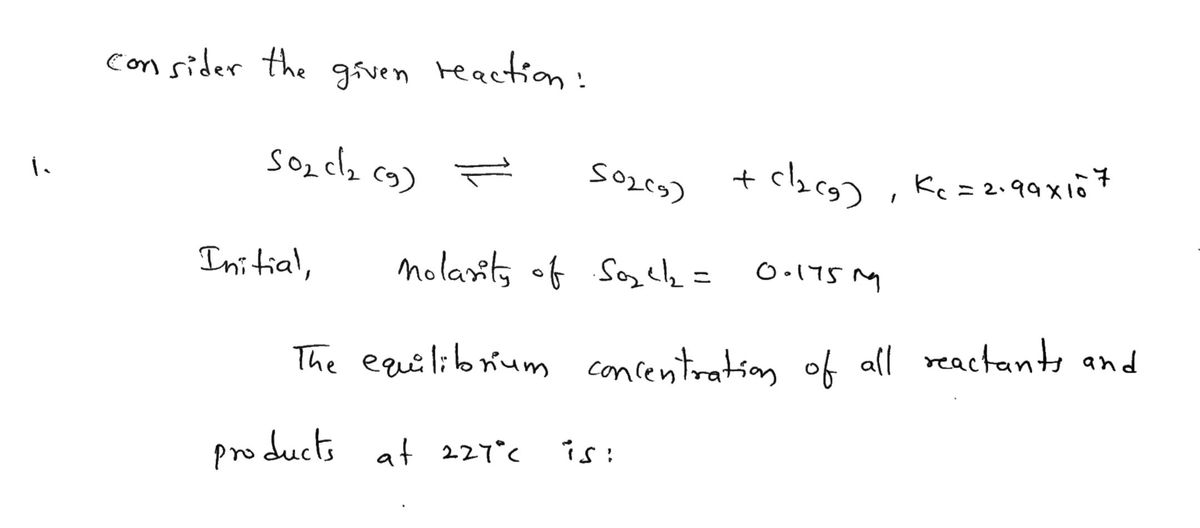 consider the given reaction:
1. SO2Cl2 (g) ⇌ SO2(g) + Cl2(g), Kc = 2.99 x 10^-7
Initial, Molarity of SO2Cl2 = 0.175 M
The equilibrium concentration of all reactants and
products at 227°C is: